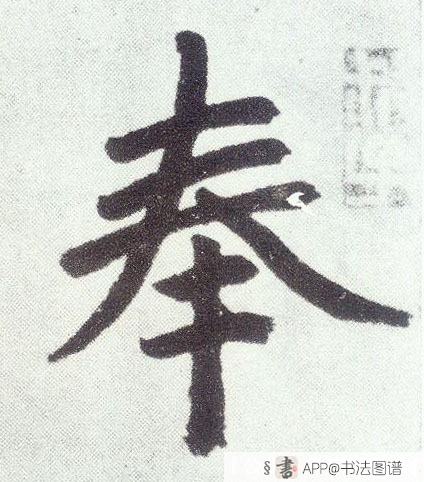 奉
§ 書 APP@书法图谱